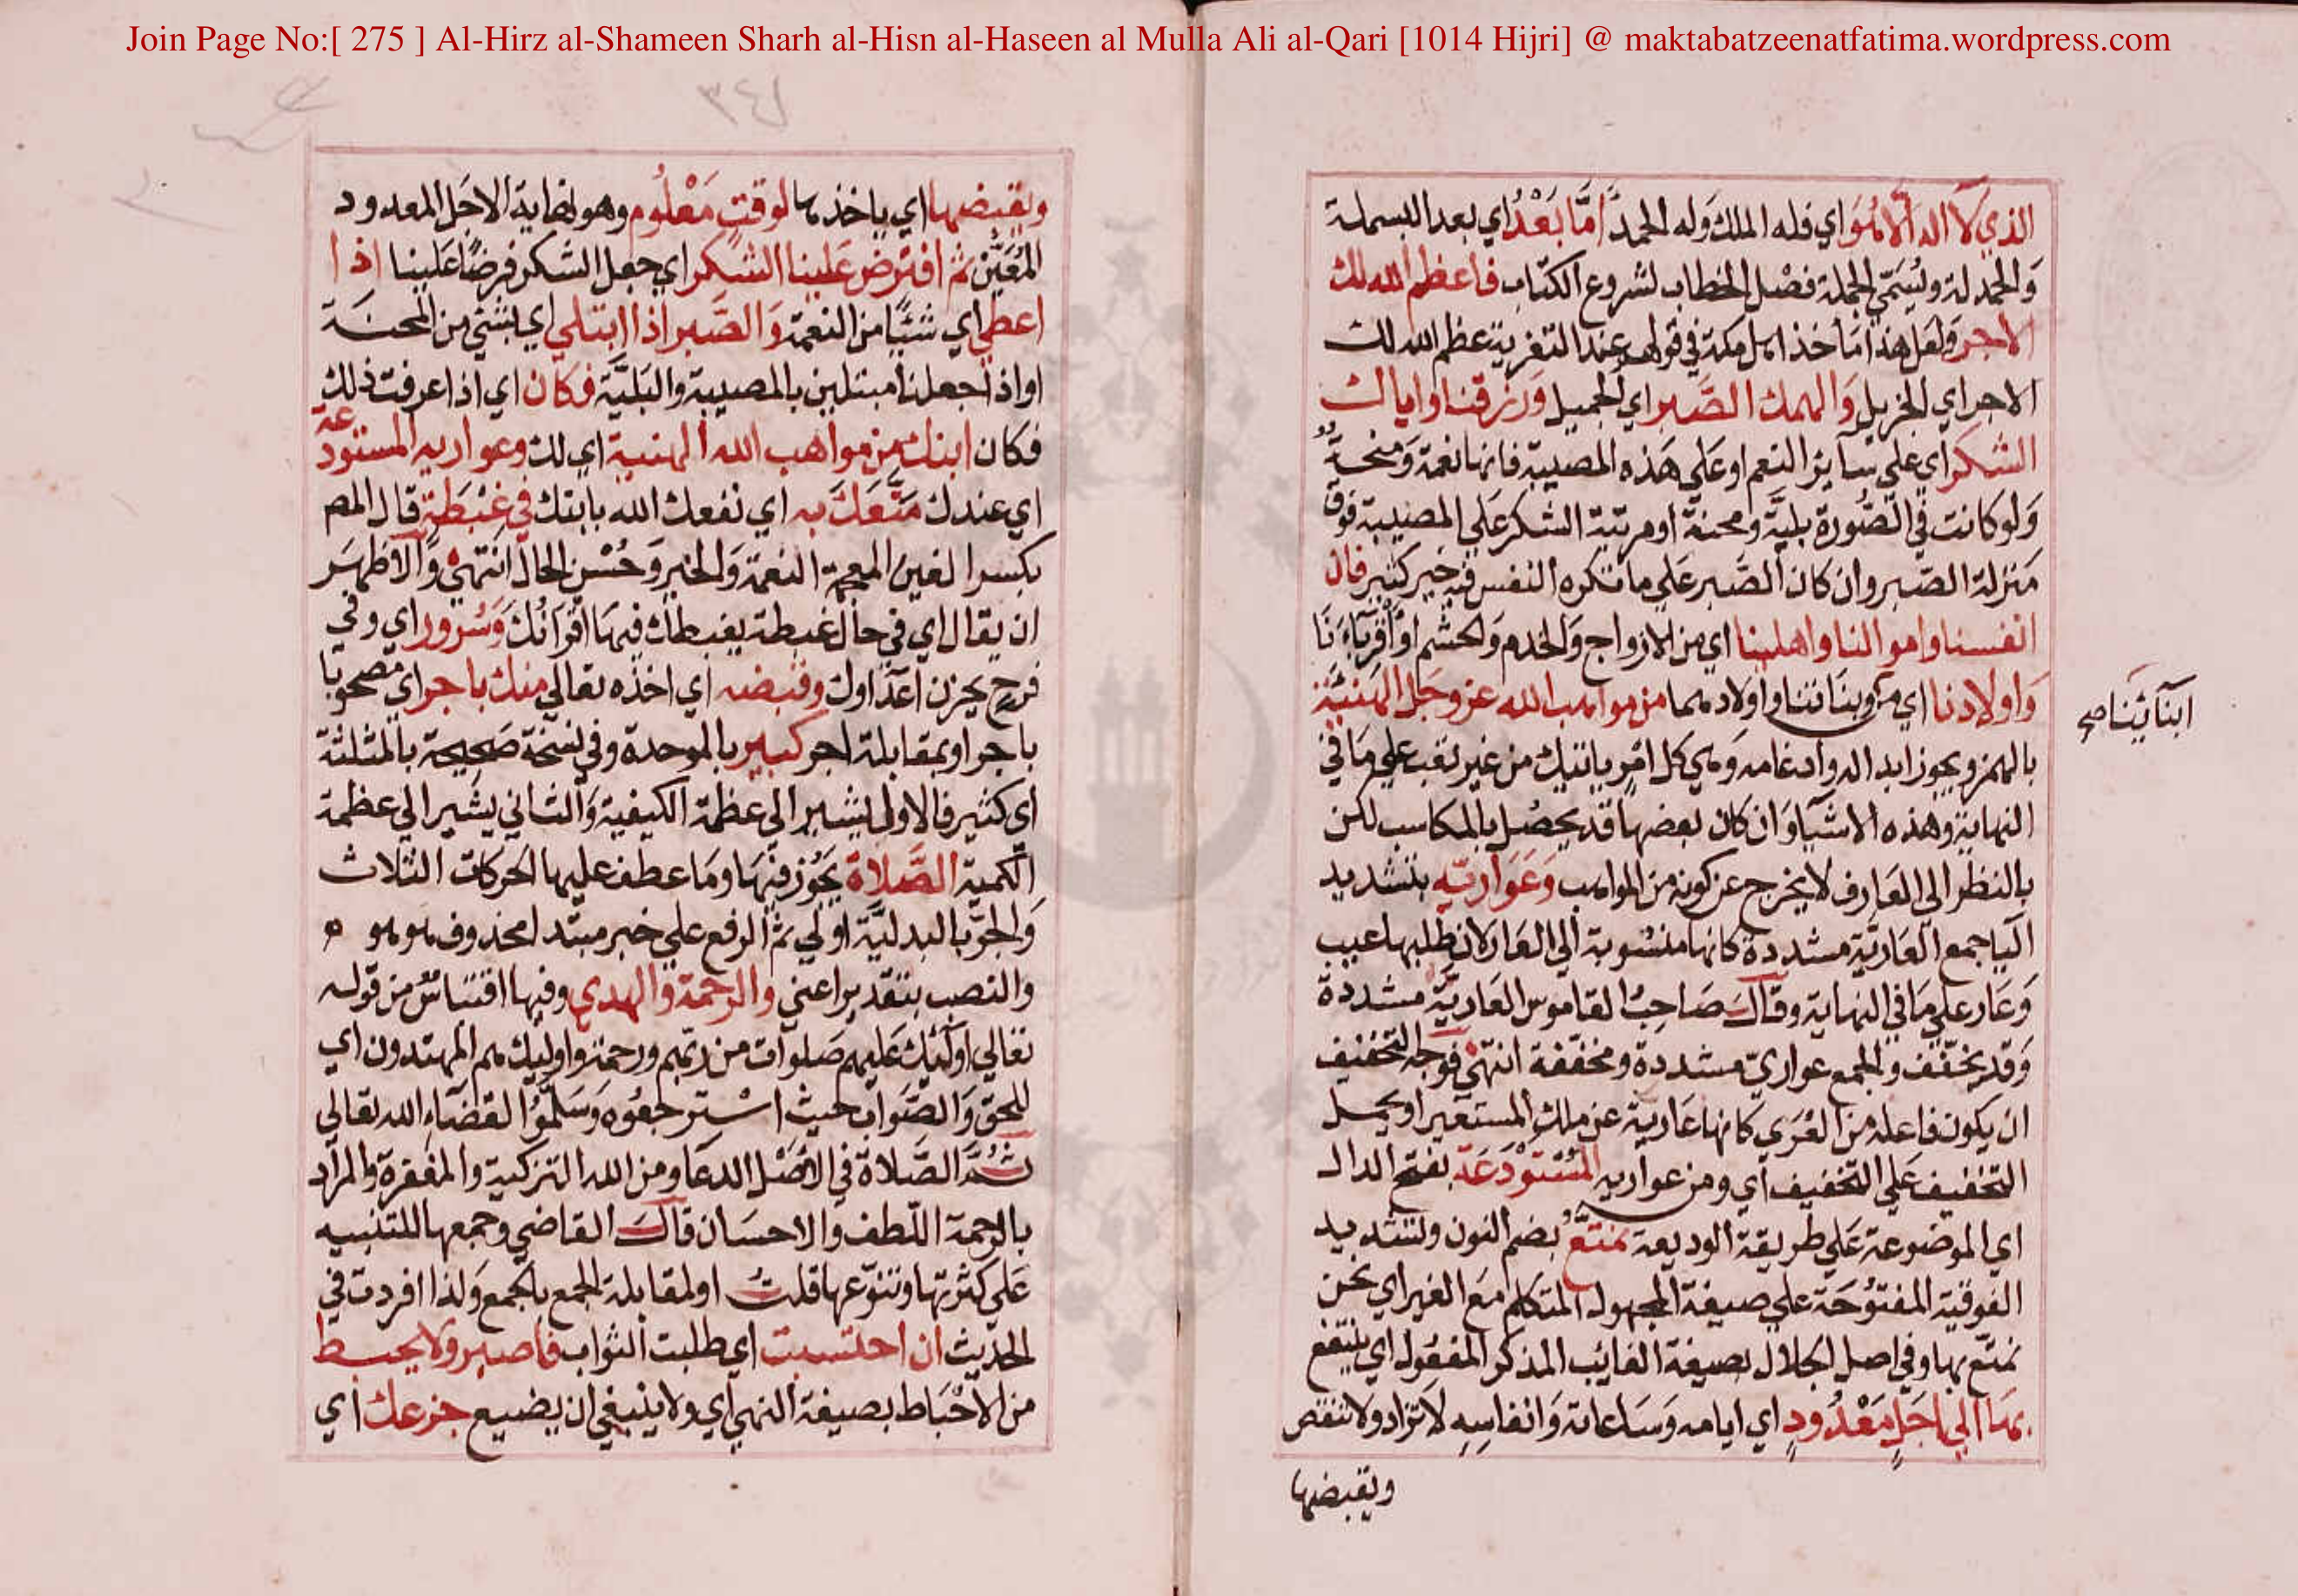 Join Page No:[ 275 ] Al-Hirz al-Shameen Sharh al-Hisn al-Haseen al Mulla Ali al-Qari [1014 Hijri] @ maktabatzeenatfatima.wordpress.com
الذي لا اله الا هو اي فله الملك وله الحمد اما بعد اي بعد البسملة
والحمدلة ويسمي الجملة فصل الخطاب لشروع الكتاب فاعظم الله لك
الاجر ولعل هذا مأخذ اهل مكة في قولهم عند التعزية عظم الله لك
الاجر اي الجزيل والهمك الصبر اي الجميل ورزقنا واياك
الشكر اي علي ساير النعم او علي هذه المصيبة فانها نعمة ومنحة
ولو كانت في الصورة بلية ومحنة او مرتبة الشكر علي المصيبة فوق
منزلة الصبر وان كان الصبر علي ما تكره النفس فيه خير كثير فان
انفسنا واموالنا واهلينا اي من الازواج والخدم والحشم او اقرباءنا
واولادنا اي من وبناتنا واولادهما من مواهب الله عز وجل الهنيئة
ابنائنا صح
بالهمز ويجوز ابداله وادغامه وهي كل امر ياتيك من غير تعب علي ما في
النهاية وهذه الاشيا وان كان بعضها قد يحصل بالمكاسب لكن
بالنظر الي العارف لا يخرج عن كونه من المواهب وعواريه بتشديد
اليا جمع العارية مشددة كانها منسوبة الي العار لان طلبها عيب
وعار علي ما في النهاية وقال صاحب القاموس العارية مشددة
وقد يخفف والجمع عواري مشددة ومخففة انتهي فوجه التخفيف
ان يكون فاعلة من العري كانها عارية عن ملك المستعير او يحمل
التخفيف علي التخفيف اي ومن عواريه المستودعة بفتح الدال
اي الموضوعة علي طريقة الوديعة نمتع بضم النون وتشديد
الفوقية المفتوحة علي صيغة المجهول المتكلم مع الغير اي نحن
نمتع بها وفي اصل الجلال بصيغة الغايب المذكر المفعول اي ينتفع
بها الي اجل معدود اي ايامه وساعاته وانفاسه لا تزاد ولا تنقص
ويقبضها
٣٤١
ويقبضها اي ياخذها لوقت معلوم وهو نهاية الاجل المعدود
المعين ثم افترض علينا الشكر اي جعل الشكر فرضا علينا اذا
اعطي اي شيئا من النعمة والصبر اذا ابتلي اي بشئ من المحنة
او اذا جعلنا مبتلين بالمصيبة والبلية فكان اي اذا عرفت ذلك
فكان ابنك من مواهب الله الهنية اي لك وعواريه المستودعة
اي عندك متعك به اي نفعك الله بابنك في غبطة قال المص
بكسر الغين المعجمة النعمة والخير وحسن الحال انتهي والاظهر
ان يقال اي في حال غبطة يغبطك فيها اقرانك وسرور اي وفي
فرح يحزن اعداوك وقبضه اي اخذه تعالي منك باجر اي مصحوبا
باجر او بمقابلة اجر كبير بالموحدة وفي نسخة صحيحة بالمثلثة
اي كثير فالاول يشير الي عظمة الكيفية والثاني يشير الي عظمة
الكمية الصلاة يجوز فيها وما عطف عليها الحركات الثلاث
والجر بالبدلية اولي ثم الرفع علي خبر مبتدا محذوف هو هو
والنصب بتقدير اعني والرحمة والهدي وفيها اقتباس من قوله
تعالي اولئك عليهم صلوات من ربهم ورحمة واوليك هم المهتدون اي
للحق والصواب حيث استرجعوه وسلموا لقضاء الله تعالي
ثم الصلاة في الاصل الدعا ومن الله التزكية والمغفرة والمراد
بالرحمة اللطف والاحسان قال القاضي وجمعها للتنبيه
علي كثرتها وتنوعها قلت او لمقابلة الجمع بالجمع ولذا افردت في
الحديث ان احتسبت اي طلبت الثواب فاصبر ولا يحبط
من الاحباط بصيغة النهي اي ولا ينبغي ان يضيع جزعك اي